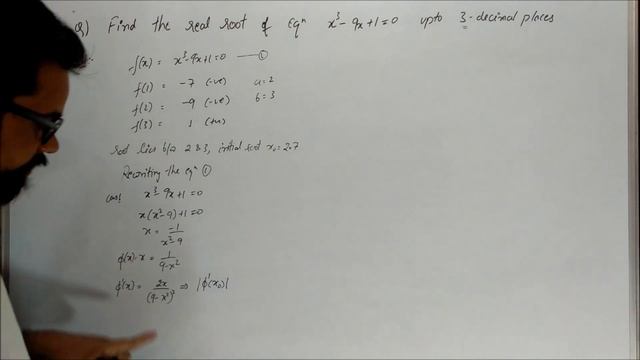 Q) Find the real root of Eqⁿ x³ - 9x + 1 = 0 upto 3-decimal places
f(x) = x³ - 9x + 1 = 0 — ①
f(1) = -7 (-ve) a = 2
f(2) = -9 (-ve) b = 3
f(3) = 1 (+ve)
root lies b/w 2 & 3, initial root x₀ = 2.7
Rewriting the eqⁿ ①
case I x³ - 9x + 1 = 0
x(x² - 9) + 1 = 0
x = -1/(x² - 9)
φ(x) = x = 1/(9 - x²)
φ'(x) = 2x/(9 - x²)² ⇒ |φ'(x₀)|